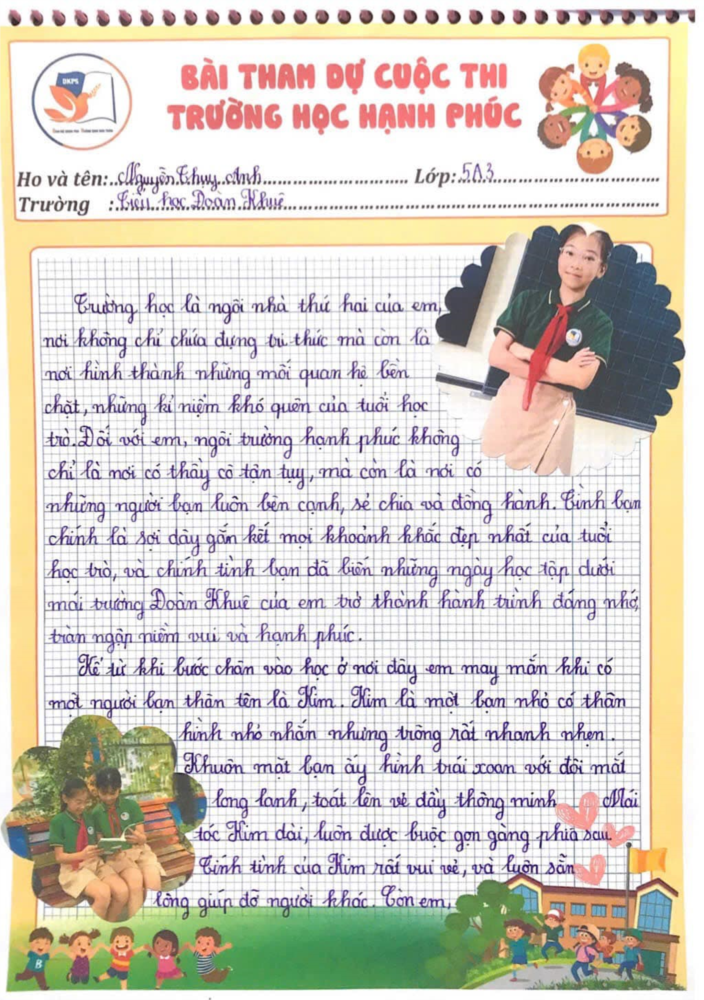 DKPS
BÀI THAM DỰ CUỘC THI
TRƯỜNG HỌC HẠNH PHÚC
Họ và tên: Nguyễn Thuy Anh Lớp: 5A3
Trường : Tiểu học Đoàn Khuê
Trường học là ngôi nhà thứ hai của em,
nơi không chỉ chứa đựng tri thức mà còn là
nơi hình thành những mối quan hệ bền
chặt, những kỉ niệm khó quên của tuổi học
trò. Đối với em, ngôi trường hạnh phúc không
chỉ là nơi có thầy cô tận tụy, mà còn là nơi có
những người bạn luôn bên cạnh, sẻ chia và đồng hành. Tình bạn
chính là sợi dây gắn kết mọi khoảnh khắc đẹp nhất của tuổi
học trò, và chính tình bạn đã biến những ngày học tập dưới
mái trường Đoàn Khuê của em trở thành hành trình đáng nhớ,
tràn ngập niềm vui và hạnh phúc.
Kể từ khi bước chân vào học ở nơi đây em may mắn khi có
một người bạn thân tên là Kim. Kim là một bạn nhỏ có thân
hình nhỏ nhắn nhưng trông rất nhanh nhẹn.
Khuôn mặt bạn ấy hình trái xoan với đôi mắt
long lanh, toát lên vẻ đầy thông minh Mái
tóc Kim dài, luôn được buộc gọn gàng phía sau.
Tính tình của Kim rất vui vẻ, và luôn sẵn
lòng giúp đỡ người khác. Còn em,